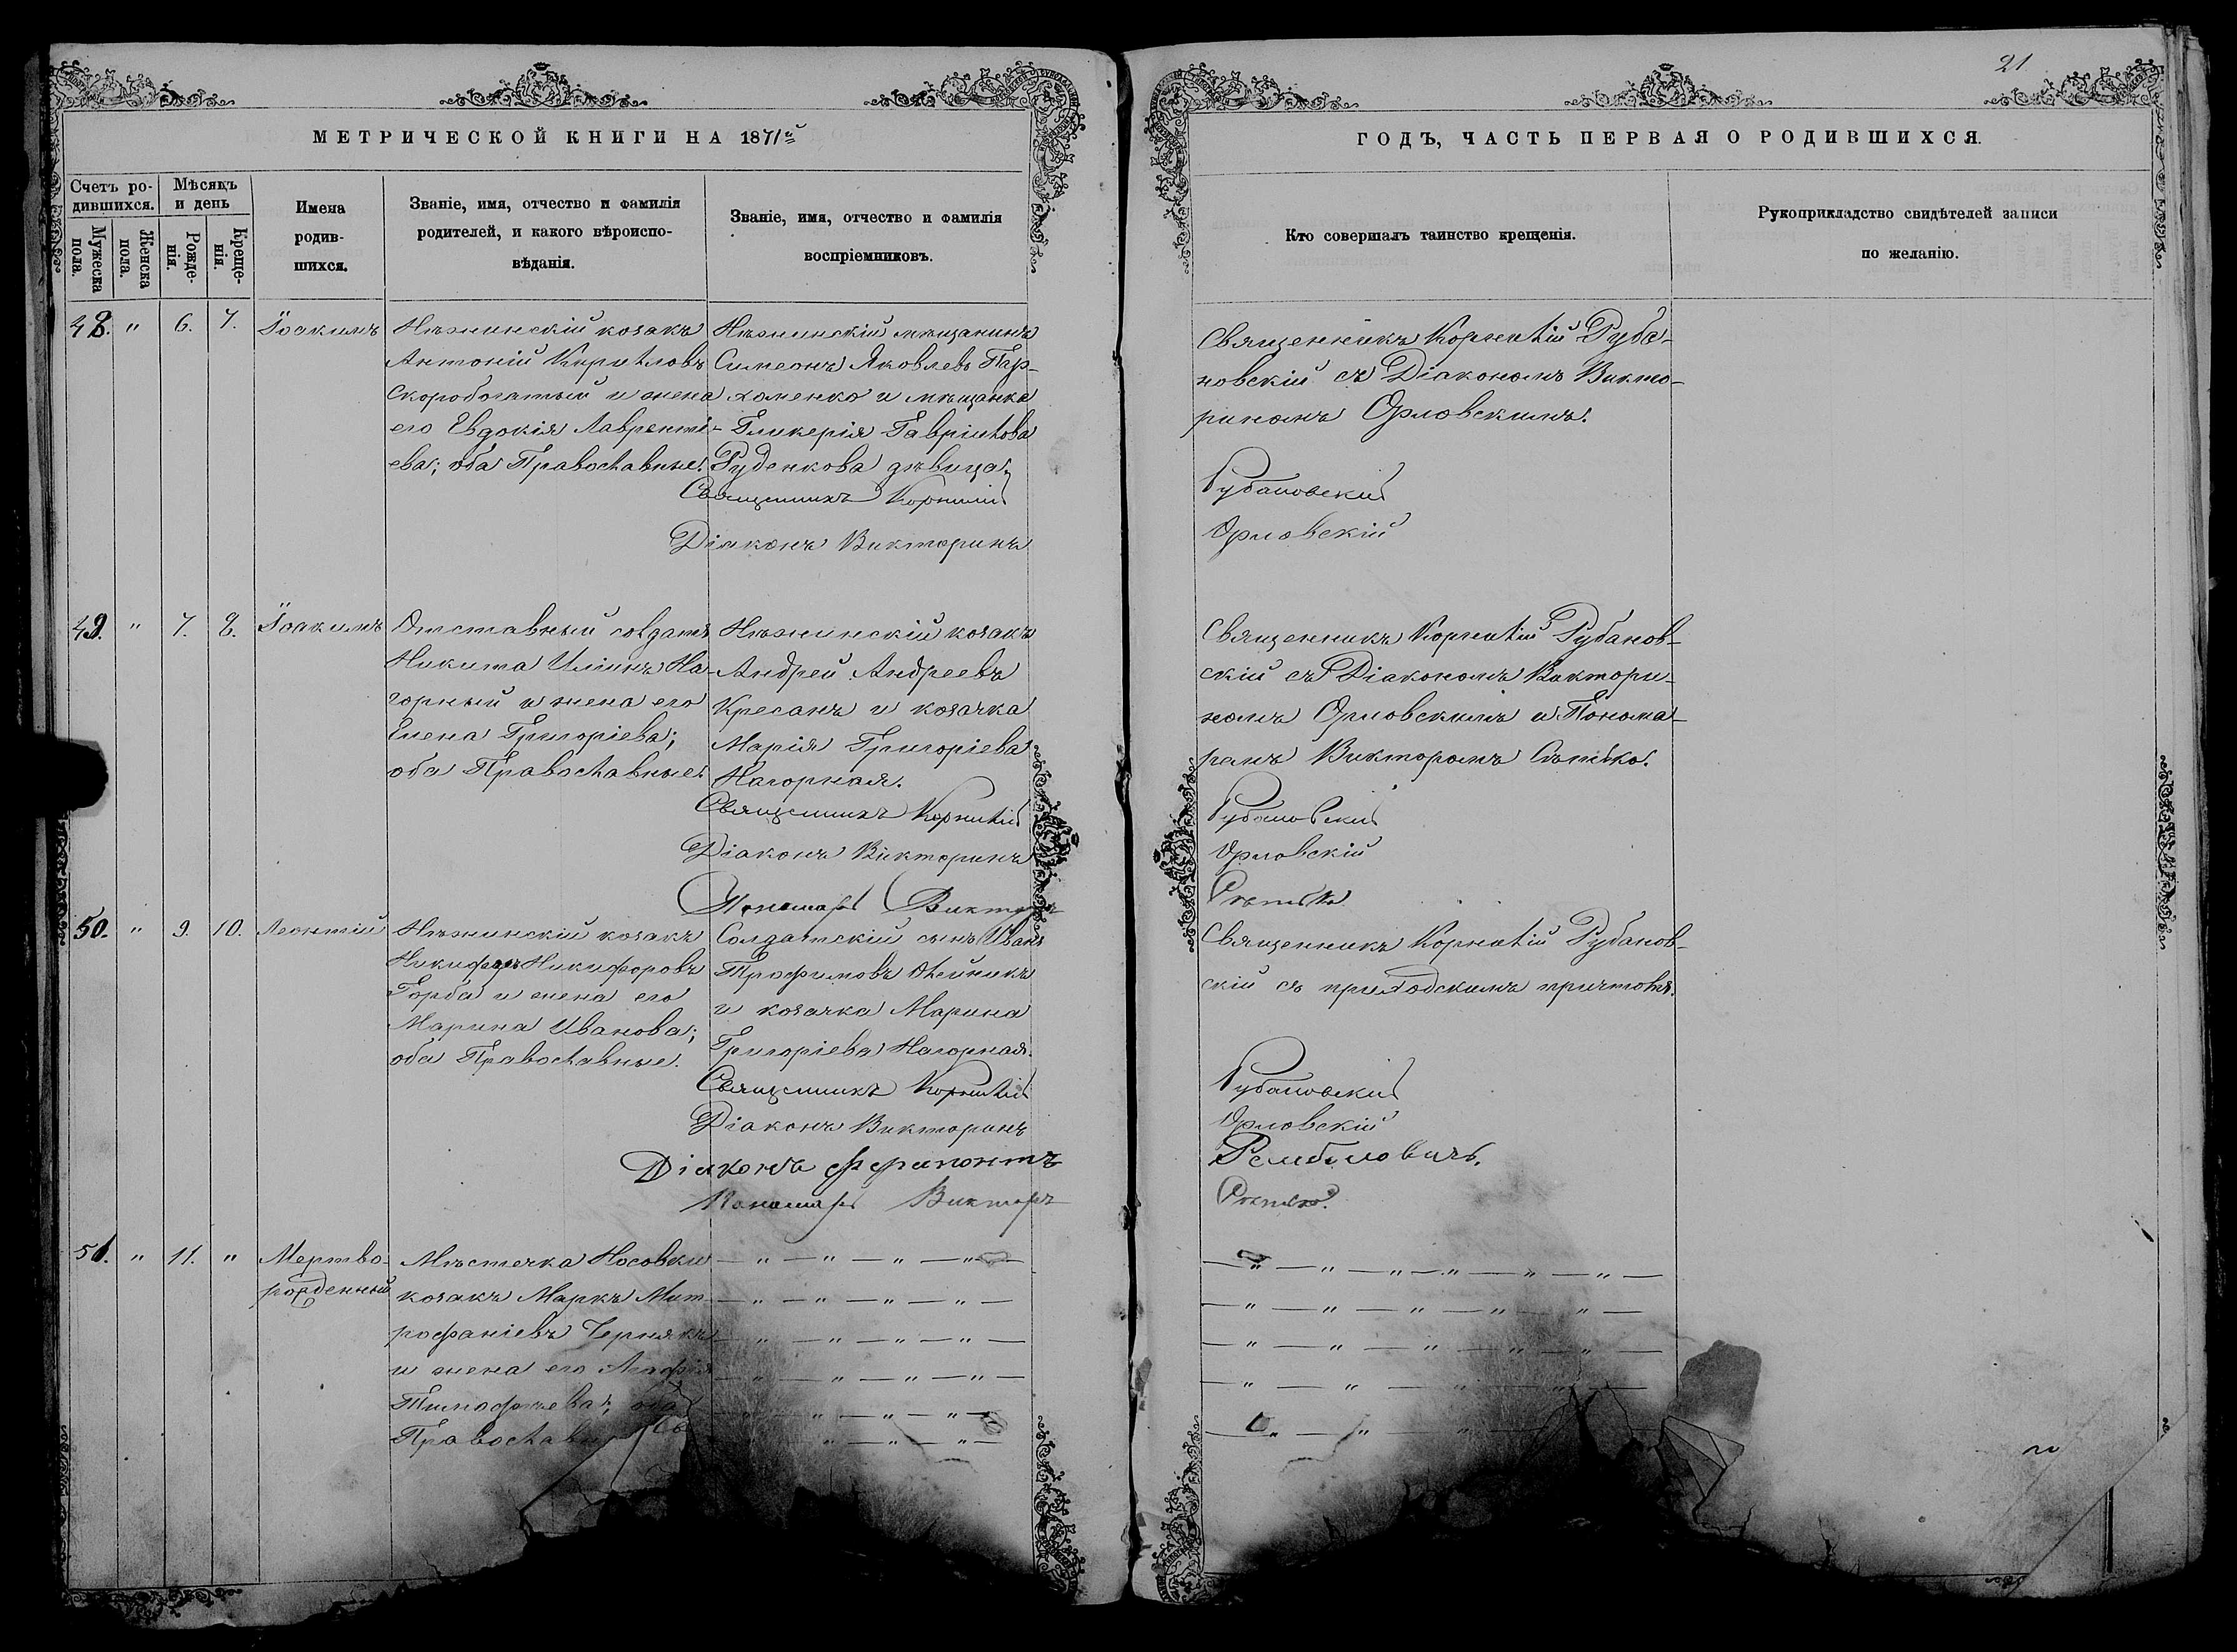 21
МЕТРИЧЕСКОЙ КНИГИ НА 1871й
ГОДЪ, ЧАСТЬ ПЕРВАЯ О РОДИВШИХСЯ.
Счетъ ро-
дившихся.
Мужеска
пола.
Женска
пола.
Мѣсяцъ
и день
Рожде-
нія.
Креще-
нія.
Имена
родив-
шихся.
Званіе, имя, отчество и фамилія
родителей, и какого вѣроиспо-
вѣданія.
Званіе, имя, отчество и фамилія
воспріемниковъ.
Кто совершалъ таинство крещенія.
Рукоприкладство свидѣтелей записи
по желанію.
48. " 6. 7. Іоакимъ
Нѣжинскій козакъ
Антоній Кириловъ
Скоробогатый и жена
его Евдокія Лавренті-
ева; оба Православные.
Нѣжинскій мѣщанинъ
Симеонъ Яковлевъ Пар-
хоменко и мѣщанка
Гликерія Гавріилова
Руденкова дѣвица.
Священникъ Корнилій
Діаконъ Викторинъ
Священникъ Корнилій Руба-
новскій съ Діакономъ Викто-
риномъ Орловскимъ.
Рубановскій
Орловскій
49. " 7. 8. Іоакимъ
Отставный солдатъ
Никита Илінъ На-
горный и жена его
Елена Григоріева;
оба Православные.
Нѣжинскій козакъ
Андрей Андреевъ
Кресанъ и козачка
Марія Григоріева
Нагорная.
Священникъ Корнилій
Діаконъ Викторинъ
Пономарь Викторъ
Священникъ Корнилій Рубанов-
скій съ Діакономъ Виктори-
номъ Орловскимъ и Понома-
ремъ Викторомъ
Рубановскій
Орловскій
50. " 9. 10. Леонтій
Нѣжинскій козакъ
Никифоръ Никифоровъ
Горба и жена его
Марина Иванова;
оба Православные.
Солдатскій сынъ Иванъ
Трофимовъ Олейникъ
и козачка Марина
Григоріева Нагорная.
Священникъ Корнилій
Діаконъ Викторинъ
Діаконъ Ферапонтъ
Пономарь Викторъ
Священникъ Корнилій Рубанов-
скій съ приходскимъ причтомъ.
Рубановскій
Орловскій
51. " 11. " Мертво-
рожденный
Мѣстечка Носовки
козакъ Маркъ Мит-
рофаніевъ Чернякъ
и жена его Агафія
Тимофѣева; оба